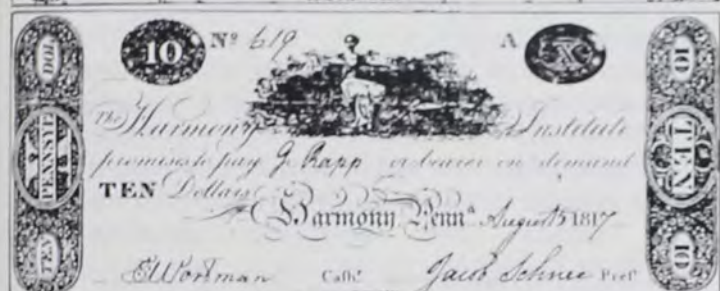 10 Nº 619 A X
The Harmony Institute
promises to pay G. Rapp or bearer on demand
TEN Dollars
Harmony, Pennª August 15 1817
Cashʳ Jacob Schnee Presᵗ
DOL
X PENNSYL X
TEN
10
TEN
10